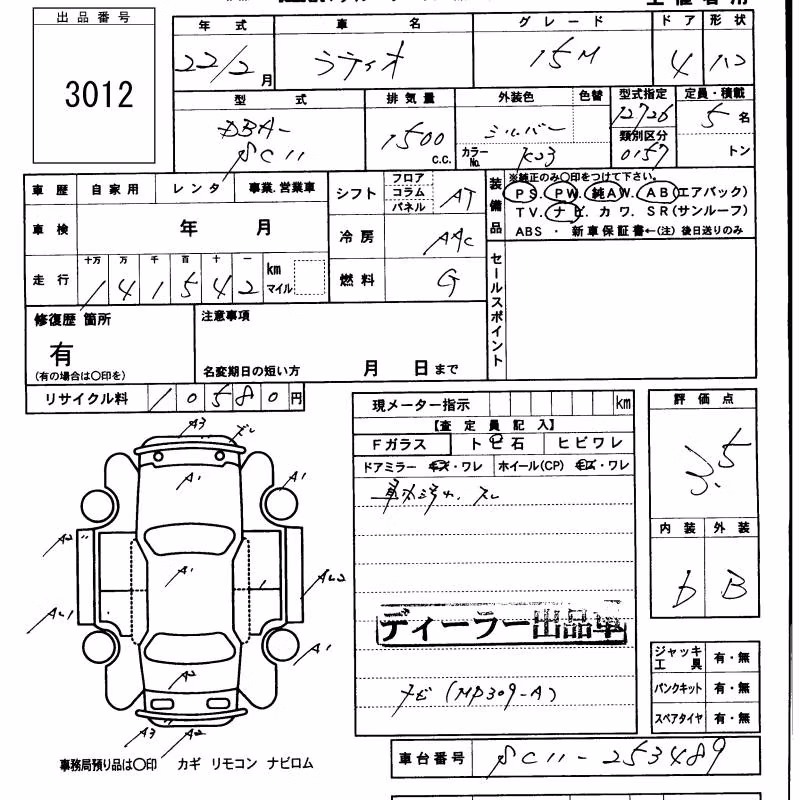 出品番号
3012
年式 車名 グレード ドア 形状
22/2月 ラティオ 15M 4 ハコ
型式 排気量 外装色 色替 型式指定 定員・積載
DBA- 1500 c.c. シルバー 12726 5名
SC11 カラーNo. K23 類別区分 0157 トン
車歴 自家用 レンタ 事業.営業車
シフト フロア コラム パネル AT
装備品
※純正のみ〇印をつけて下さい。
PS. PW. 純AW. AB(エアバック)
TV. ナビ. カワ. SR(サンルーフ)
ABS ・ 新車保証書←(注) 後日送りのみ
車検 年 月
冷房 AAC
走行 十万 万 千 百 十 一 km マイル
141542
燃料 G
セールスポイント
修復歴 箇所
有
(有の場合は〇印を)
注意事項
名変期日の短い方 月 日まで
リサイクル料 10580円
現メーター指示 km
【査定員記入】
Fガラス トビ石 ヒビワレ
ドアミラー キズ・ワレ ホイール(CP) キズ・ワレ
ディーラー出品車
ナビ(MP309-A)
評価点
3.5
内装 外装
b B
ジャッキ 工具 有・無
パンクキット 有・無
スペアタイヤ 有・無
車台番号 SC11-253489
A3
A1 A1
A2
A1
AL1 AL2
A1
A2
A3 A2
事務局預り品は〇印 カギ リモコン ナビロム